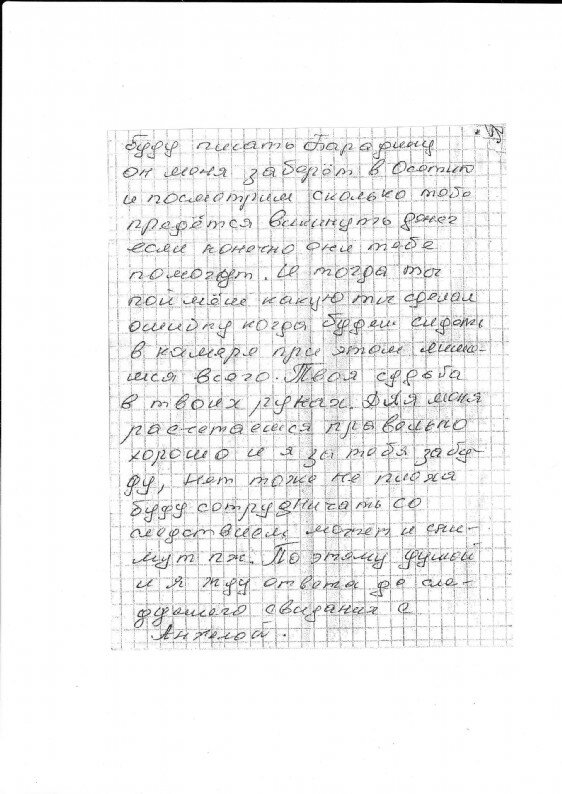 буду писать Барадину
он меня заберёт в Осетию
и посмотрим сколько тебе
предётся викинуть денег
если конечно они тебе
помогут. И тогда ты
поймёш какую ты сделал
ошибку когда будеш сидеть
в камере при этом лиши-
шся всего. Твоя судьба
в твоих руках. Для меня
расчетаешся правельно
хорошо и я за тебя забу-
ду, нет тоже не плоха
буду сотрудничать со
следствием может и сни-
мут пж. По этому думой
и я жду ответа до сле-
дующего свидания с
Анжелой.